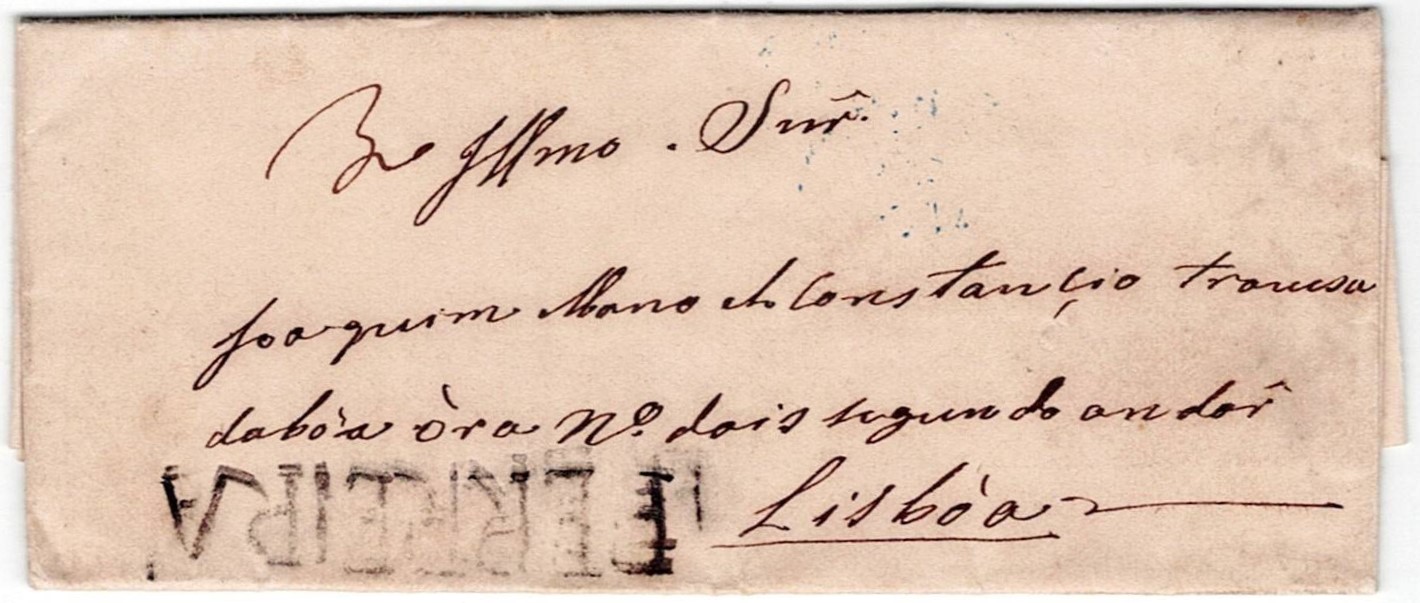 Illmo. Snr.
Joaquim Mano de Constançio travesa
da bôa òra Nº. dois segundo andar
Lisbôa